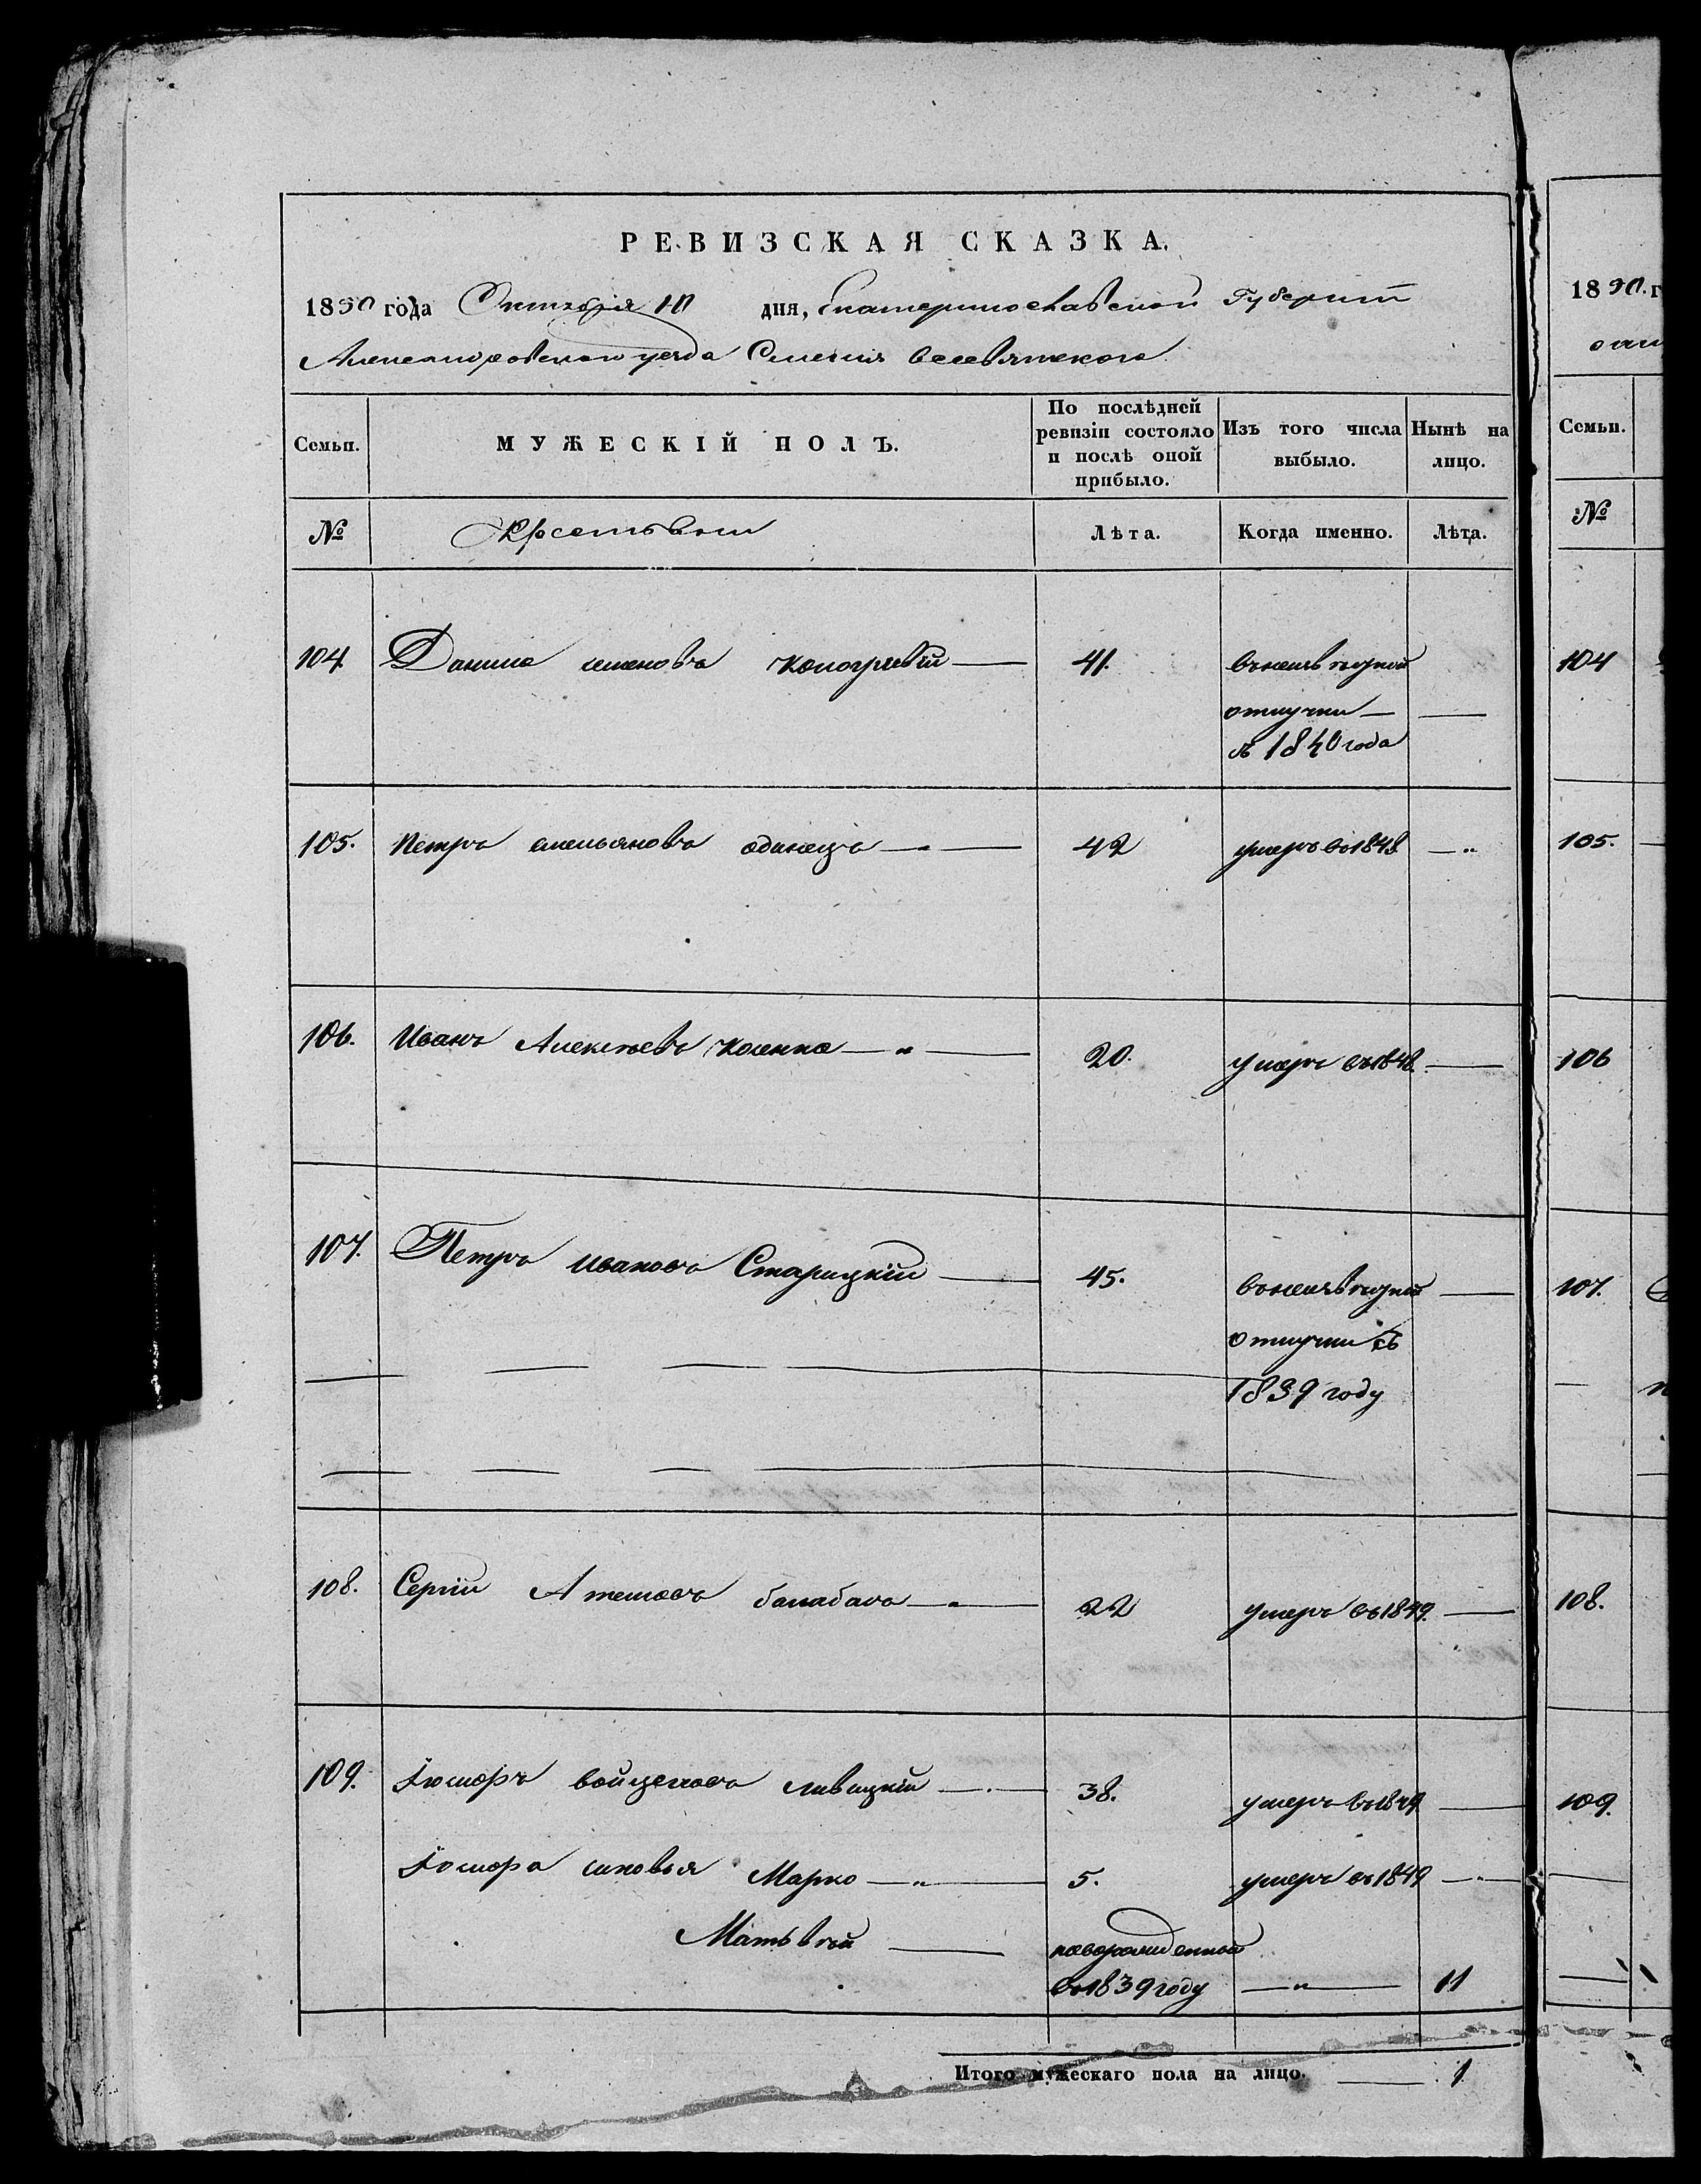 РЕВИЗСКАЯ СКАЗКА.
1850 года Октября 10 дня, Екатеринославской Губернiи
Александровского уезда Селения
МУЖЕСКІЙ ПОЛЪ.
Семьи.
По послѣдней ревизіи состояло и послѣ оной прибыло.
Изъ того числа выбыло.
Нынѣ на лицо.
№
Лѣта.
Когда именно.
Лѣта.
104. Данило семеновъ 41. въ неизвѣстной
отлучки —
съ 1840 года
105. Петръ емельяновъ одинецъ — 42 умеръ въ 1848 —
106. Иванъ Алексѣевъ — 20. умеръ въ 1848. —
107. Петръ ивановъ Старицкiй — 45. въ неизвѣстной —
отлучки съ
1839 году
108. Сергiй балабасъ — 22 умеръ въ 1849. —
109. Ѳюдоръ ливицкiй — 38. умеръ въ 1849 —
Ѳюдора сыновья Марко — 5. умеръ въ 1849 —
Матьвѣй — новорожденной
въ 1839 году — 11
Итого мужескаго пола на лицо. — 1
1850. г
Семьи.
№
104
105.
106
107.
108.
109.